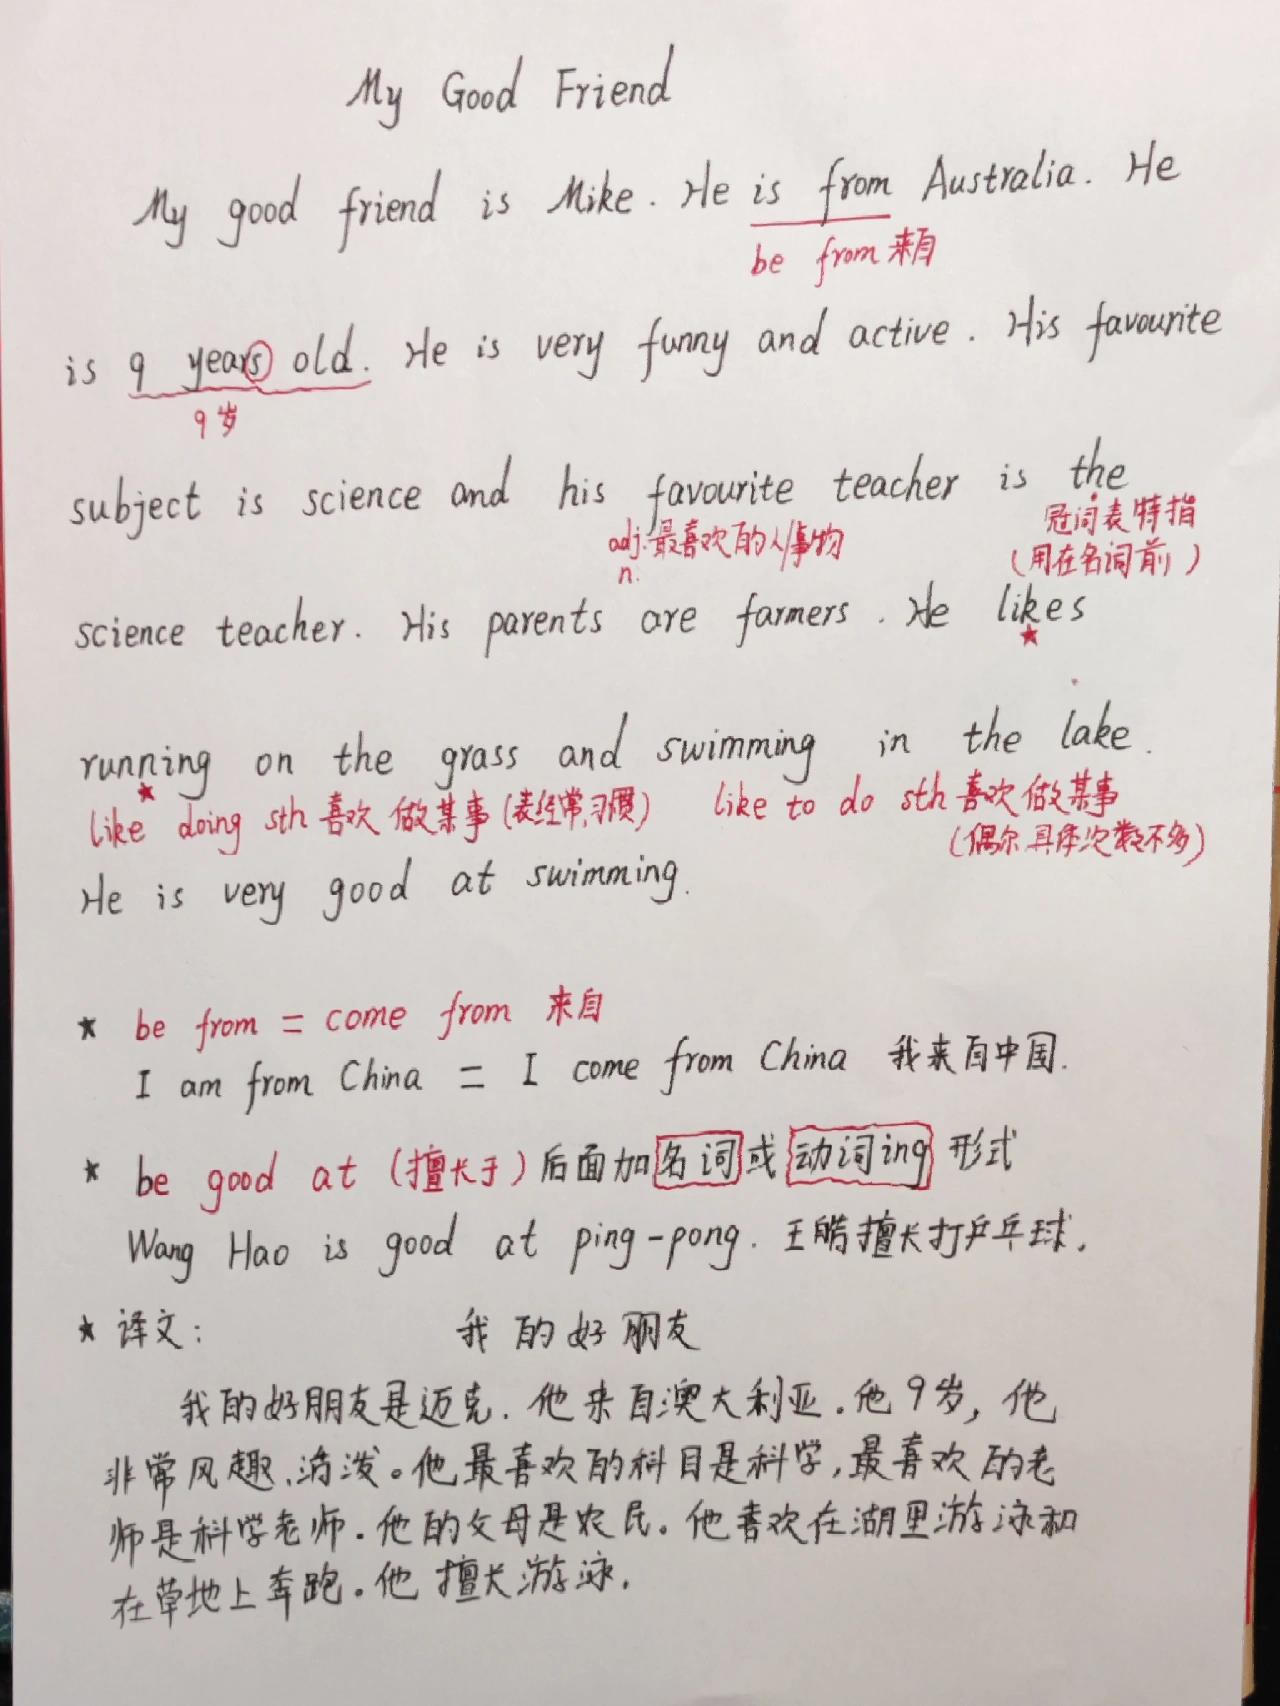 My Good Friend
My good friend is Mike. He is from Australia. He
be from 来自
is 9 years old. He is very funny and active. His favourite
9岁
subject is science and his favourite teacher is the
adj. 最喜欢的人/事物
n.
冠词表特指
(用在名词前)
science teacher. His parents are farmers. He likes
★
running on the grass and swimming in the lake.
★
like doing sth 喜欢做某事(表经常,习惯) like to do sth 喜欢做某事
(偶尔,具体次数不多)
He is very good at swimming.
★ be from = come from 来自
I am from China = I come from China 我来自中国.
★ be good at (擅长于) 后面加名词或动词ing形式
Wang Hao is good at ping-pong. 王皓擅长打乒乓球.
★ 译文: 我的好朋友
我的好朋友是迈克. 他来自澳大利亚. 他9岁, 他
非常风趣、活泼。他最喜欢的科目是科学,最喜欢的老
师是科学老师. 他的父母是农民。他喜欢在湖里游泳和
在草地上奔跑. 他擅长游泳.